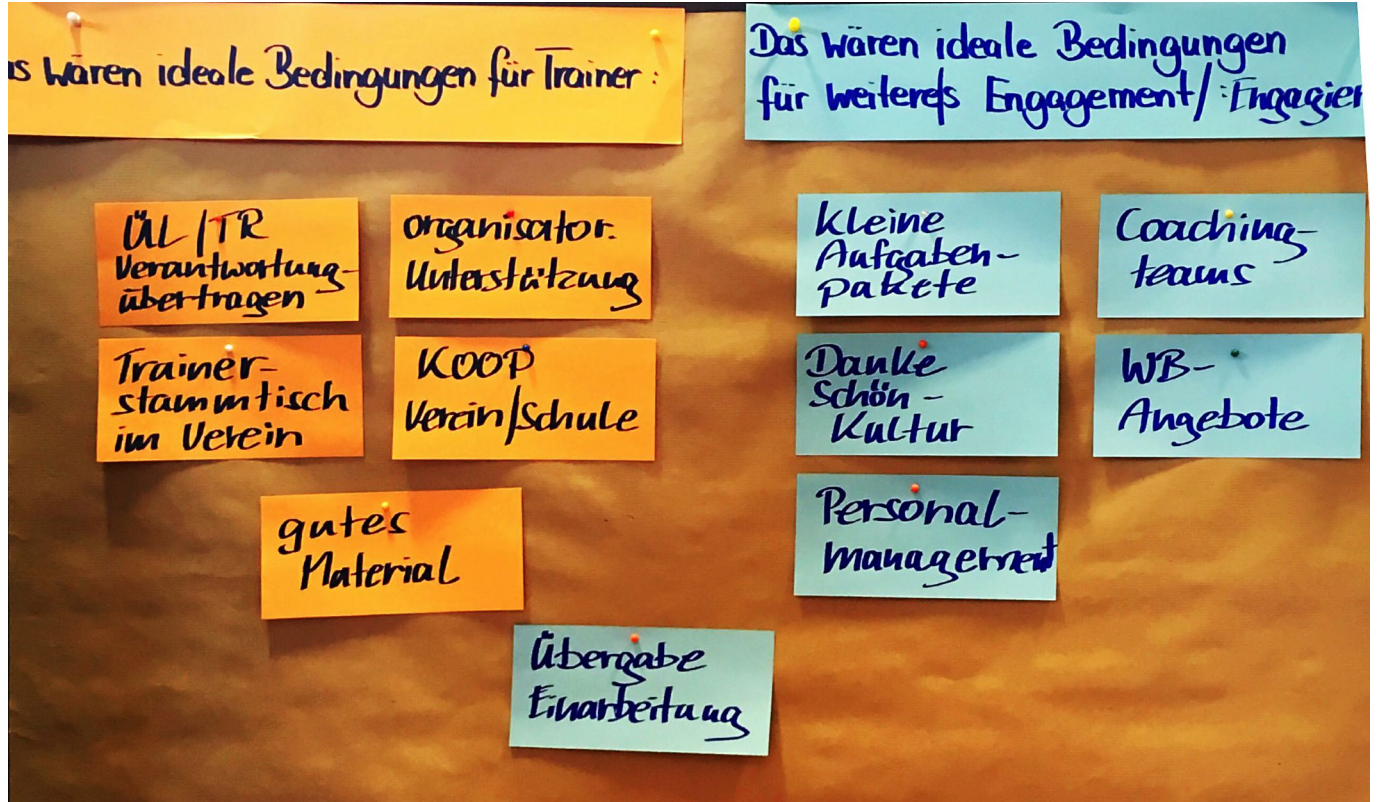 s wären ideale Bedingungen für Trainer:
ÜL/TR
Verantwortung-
übertragen
organisator.
Unterstützung
Trainer-
stammtisch
im Verein
KOOP
Verein/Schule
gutes
Material
Das wären ideale Bedingungen
für weiteres Engagement/:Engagier
kleine
Aufgaben-
pakete
Coaching-
teams
Danke
Schön-
Kultur
WB-
Angebote
Personal-
management
Übergabe
Einarbeitung